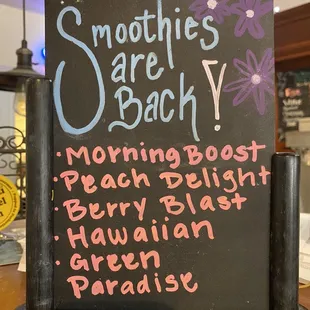 Smoothies
are
Back!
· Morning Boost
· Peach Delight
· Berry Blast
· Hawaiian
· Green
Paradise